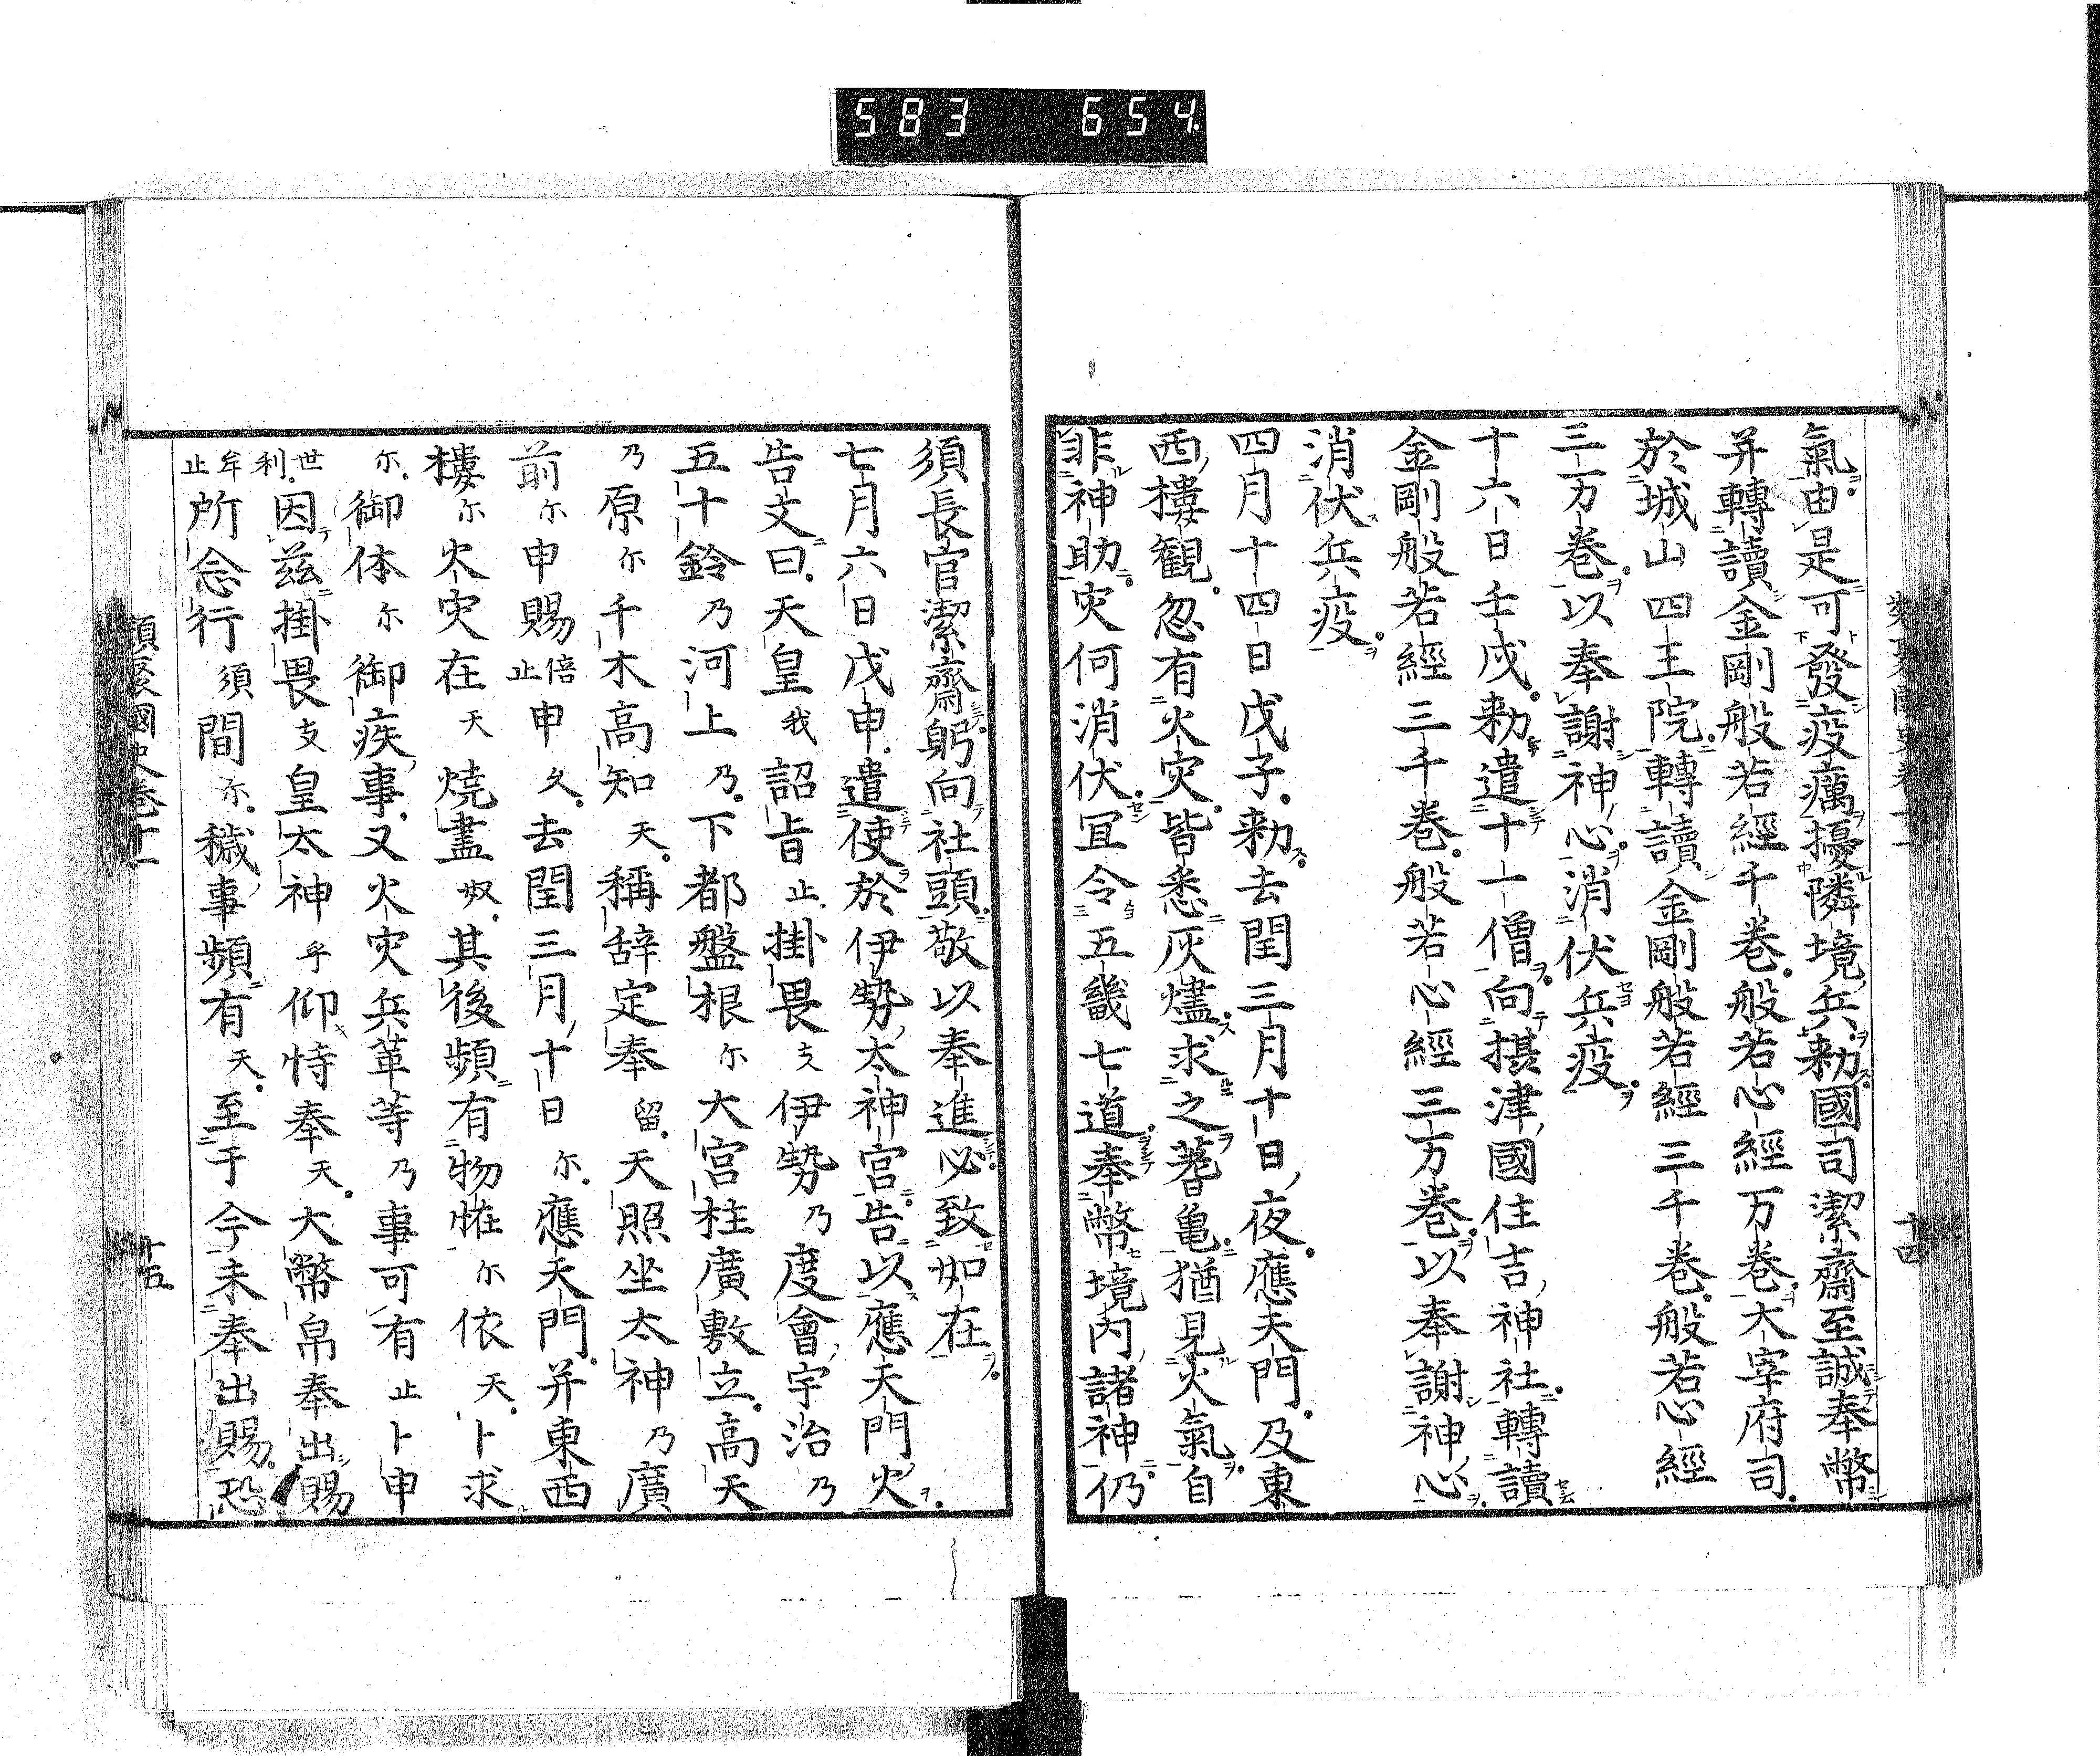 583 654
氣由是可發疫癘擾隣境兵勅國司潔齋至誠奉幣
并轉讀金剛般若經千巻般若心經万巻大宰府司
於城山四王院轉讀金剛般若經三千巻般若心經
三万巻以奉謝神心消伏兵疫
十六日壬戌勅遣十一僧向摂津國住吉神社轉讀
金剛般若經三千巻般若心經三万巻以奉謝神心
消伏兵疫
四月十四日戊子勅去閏三月十日夜應天門及東
西樓觀忽有火灾皆悉灰燼求之蓍亀猶見火氣自
非神助灾何消伏冝令五畿七道奉幣境内諸神仍
十四
須長官潔齋躬向社頭敬以奉進必致如在
七月六日戊申遣使於伊勢太神宮告以應天門火
告文曰天皇我詔旨止掛畏支伊勢乃度會宇治乃
五十鈴乃河上乃下都盤根尓大宮柱廣敷立高天
乃原尓千木高知天稱辞定奉留天照坐太神乃廣
前尓申賜倍止申久去閏三月十日尓應天門并東西
樓尓火灾在天焼盡奴其後頻有物恠尓依天卜求
尓御体尓御疾事又火灾兵革等乃事可有止卜申
世利因茲掛畏支皇太神乎仰恃奉天大幣帛奉出賜
牟止所念行須間尓穢事頻有天至于今未奉出賜恐
類聚國史巻十一
十五